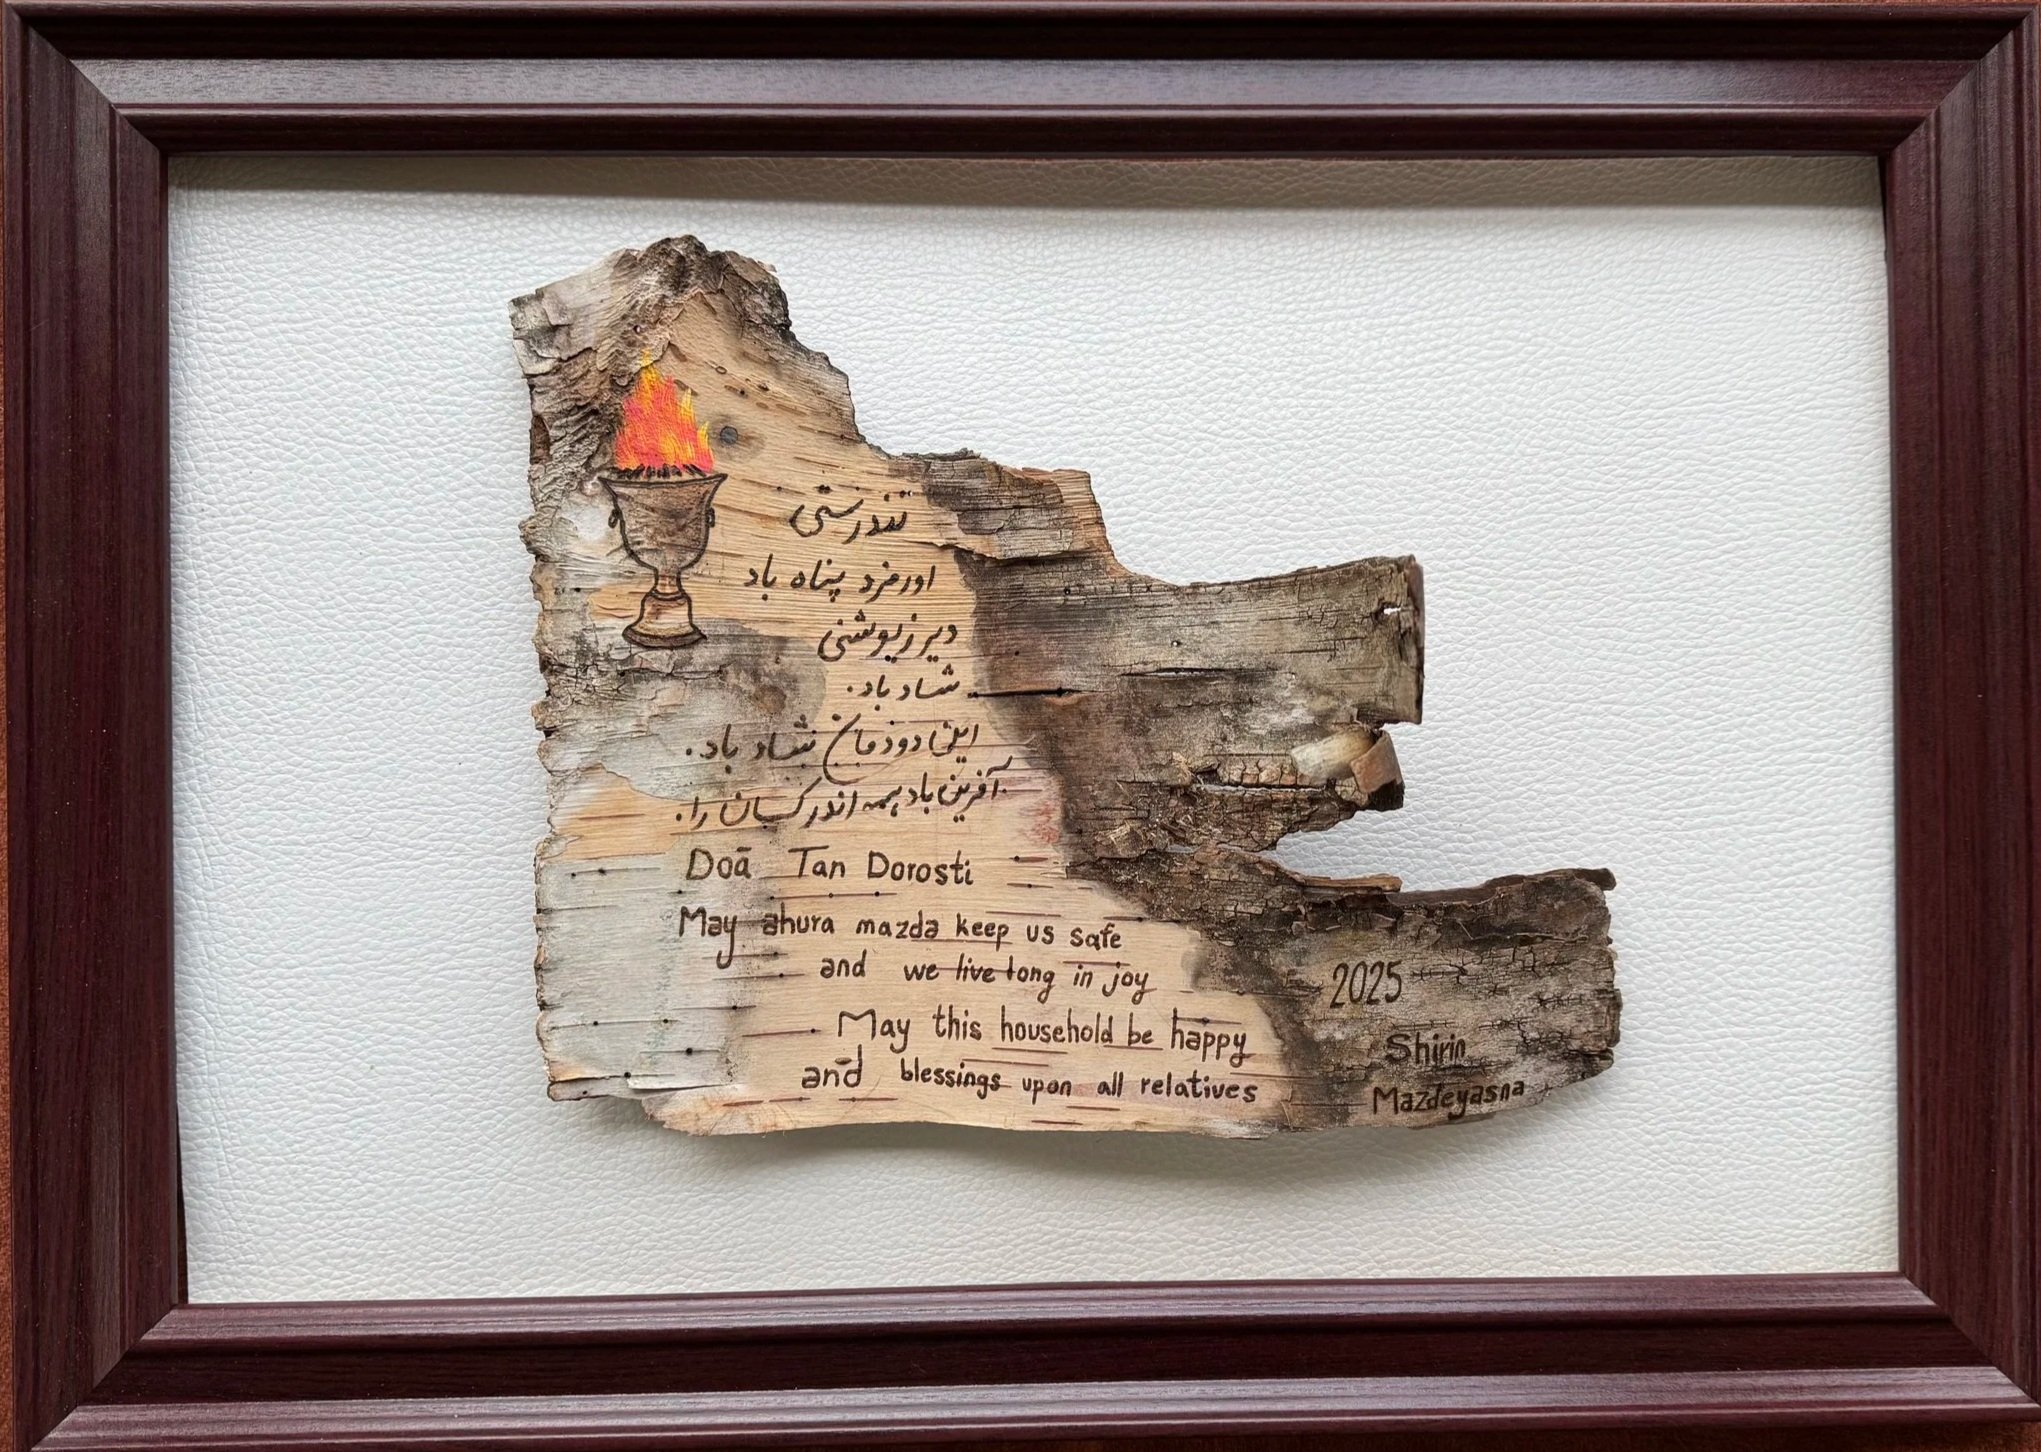 تندرستی
اورمزد پناه باد
دیر زیوشنی
شاد باد.
ایلی دودمان شاد باد.
آفرین باد همه اندر کسان را.
Doā Tan Dorosti
May ahura mazda keep us safe
and we live long in joy
May this household be happy
and blessings upon all relatives
2025
Shirin
Mazdeyasna